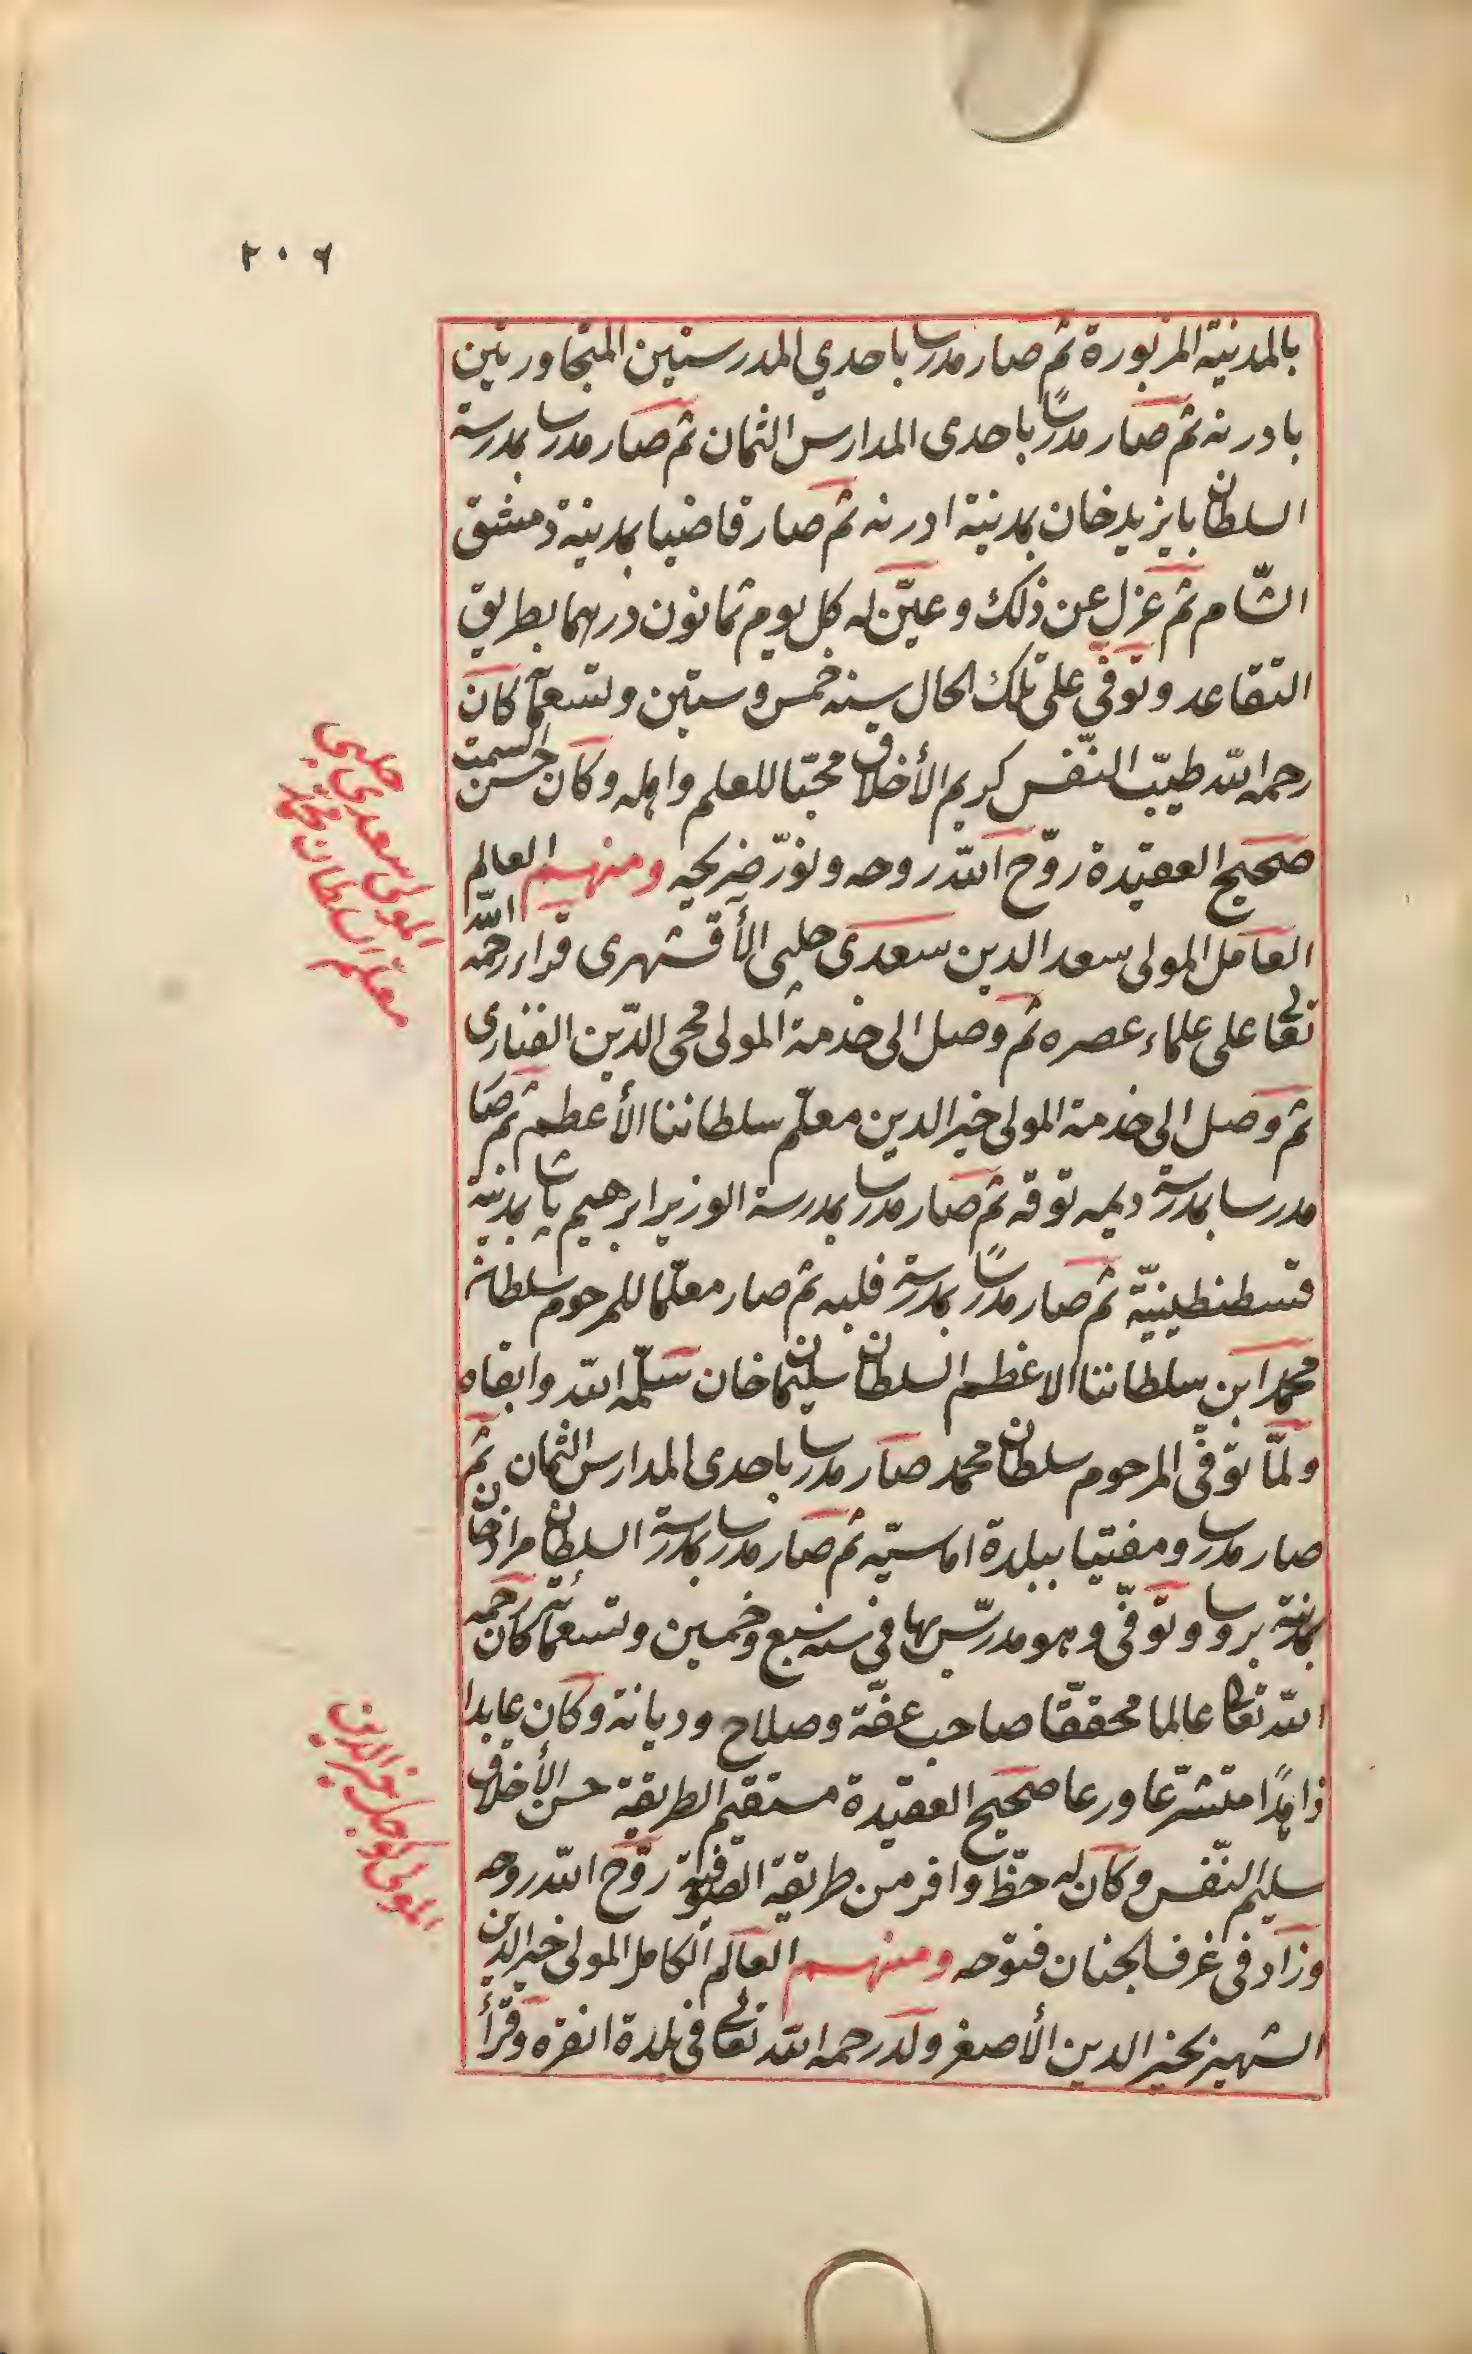 ٢٠٦
بالمدينة المزبورة ثم صار مدرسا باحدي المدرستين المتجاورتين
بادرنه ثم صار مدرسًا باحدى المدارس الثمان ثم صار مدرسا بمدرسة
السلطان بايزيد خان بمدينة ادرنه ثم صار قاضيا بمدينة دمشق
الشّام ثم عزل عن ذلك وعيّن له كل يوم ثمانون درهما بطريق
التقاعد وتوفّي على تلك الحال سنه خمس وستين وتسعمائة كان
رحمه اللّه طيّب النّفس كريم الأخلاق محبّا للعلم واهله وكان حسن السمت
صحيح العقيدة روّح اللّه روحه ونوّر ضريحه ومنهم العالم
العامل المولى سعد الدين سعدى جلبى الأقشهرى قراء رحمه اللّه
تعالى على علماء عصره ثم وصل الى خدمة المولى محى الدّين الفنارى
ثم وصل الى خدمة المولى خير الدين معلّم سلطاننا الأعظم ثم صار
مدرسا بمدرسة ديمه توقه ثم صار مدرسا بمدرسة الوزير ابرهيم پاشا بمدينة
قسطنطينيّة ثم صار مدرسًا بمدرسة فلبه ثم صار معلّما للمرحوم سلطان
محمد ابن سلطاننا الاعظم السلطان سليمان خان سلّمه اللّه وابقاه
ولمّا توفّى المرحوم سلطان محمد صار مدرسا باحدى المدارس الثمان ثم
صار مدرسا ومفتيا ببلدة اماسيّه ثم صار مدرسا بمدرسة السلطان مراد خان
بمدينة بروسا وتوفّى وهو مدرّس بها فى سنه سبع وخمسين وتسعمائة كان رحمه
اللّه تعالى عالما محققّا صاحب عفّة وصلاح وديانة وكان عابدا
زاهدًا متشرّعا ورعا صحيح العقيدة مستقيم الطريقة حسن الأخلاق
سليم النّفس وكان له حظّ وافر من طريقة الصوفية روّح اللّه روحه
وزاد فى غرف الجنان فتوحه ومنهم العالم الكامل المولى خير الدين
الشهير بخير الدين الأصغر ولد رحمه اللّه تعالى فى بلدة انقره وقرأ
المولى سعدى جلبى
معلم السلطان محمد
المولى كوجك خير الدين